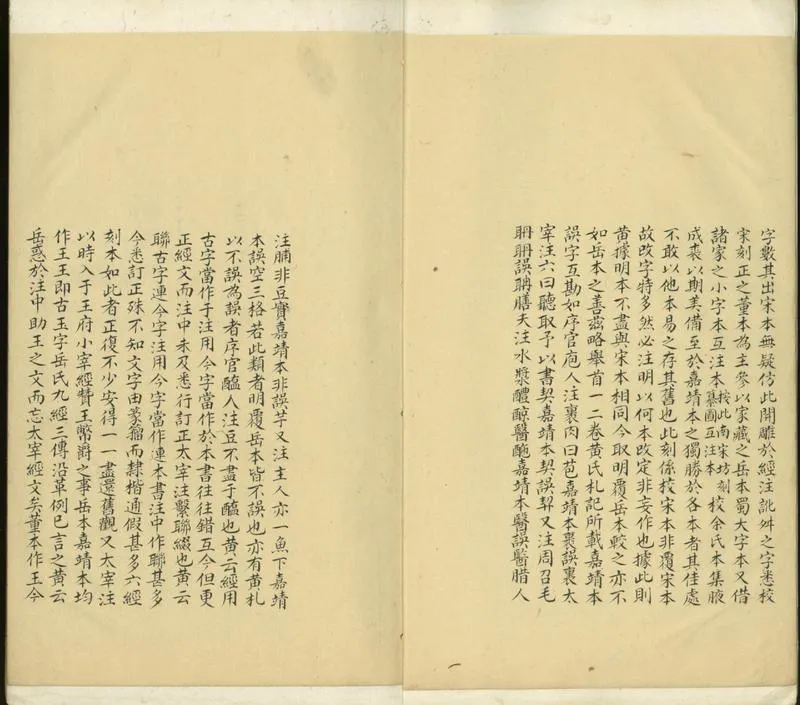 字數其出宋本無疑仿此開雕於經注訛舛之字悉校
宋刻正之董本為主參以家藏之岳本蜀大字本又借
諸家之小字本互注本按此南宋坊刻纂圖互注本校余氏本集腋
成裘以期美備至於嘉靖本之獨勝於各本者其佳處
不敢以他本易之存其舊也此刻係校宋本非覆宋本
故改字特多然必注明以何本改定非妄作也據此則
黃據明本不盡與宋本相同今取明覆岳本較之亦不
如岳本之善茲略舉首一二卷黃氏札記所載嘉靖本
誤字互勘如序官庖人注裹肉曰苞嘉靖本裹誤裏太
宰注六曰聽取予以書契嘉靖本契誤挈又注周召毛
聃聃誤聃膳夫注水漿醴醇醫酏嘉靖本醫誤醫腊人
注腩非豆實嘉靖本非誤芋又注主人亦一魚下嘉靖
本誤空三格若此類者明覆岳本皆不誤也亦有黃札
以不誤為誤者序官醢人注豆不盡于醢也黃云經用
古字當作于注用今字當作於本書往往錯互今但更
正經文而注中未及悉行訂正太宰注繫聯綴也黃云
聯古字連今字注用今字當作連本書注中作聯甚多
今悉訂正殊不知文字由篆籀而隸楷通假甚多六經
刻本如此者正復不少安得一一盡還舊觀又太宰注
以時入于王府小宰經贊王幣爵之事岳本嘉靖本均
作王王即古玉字岳氏九經三傳沿革例已言之黃云
岳惑於注中助王之文而忘太宰經文矣董本作王今